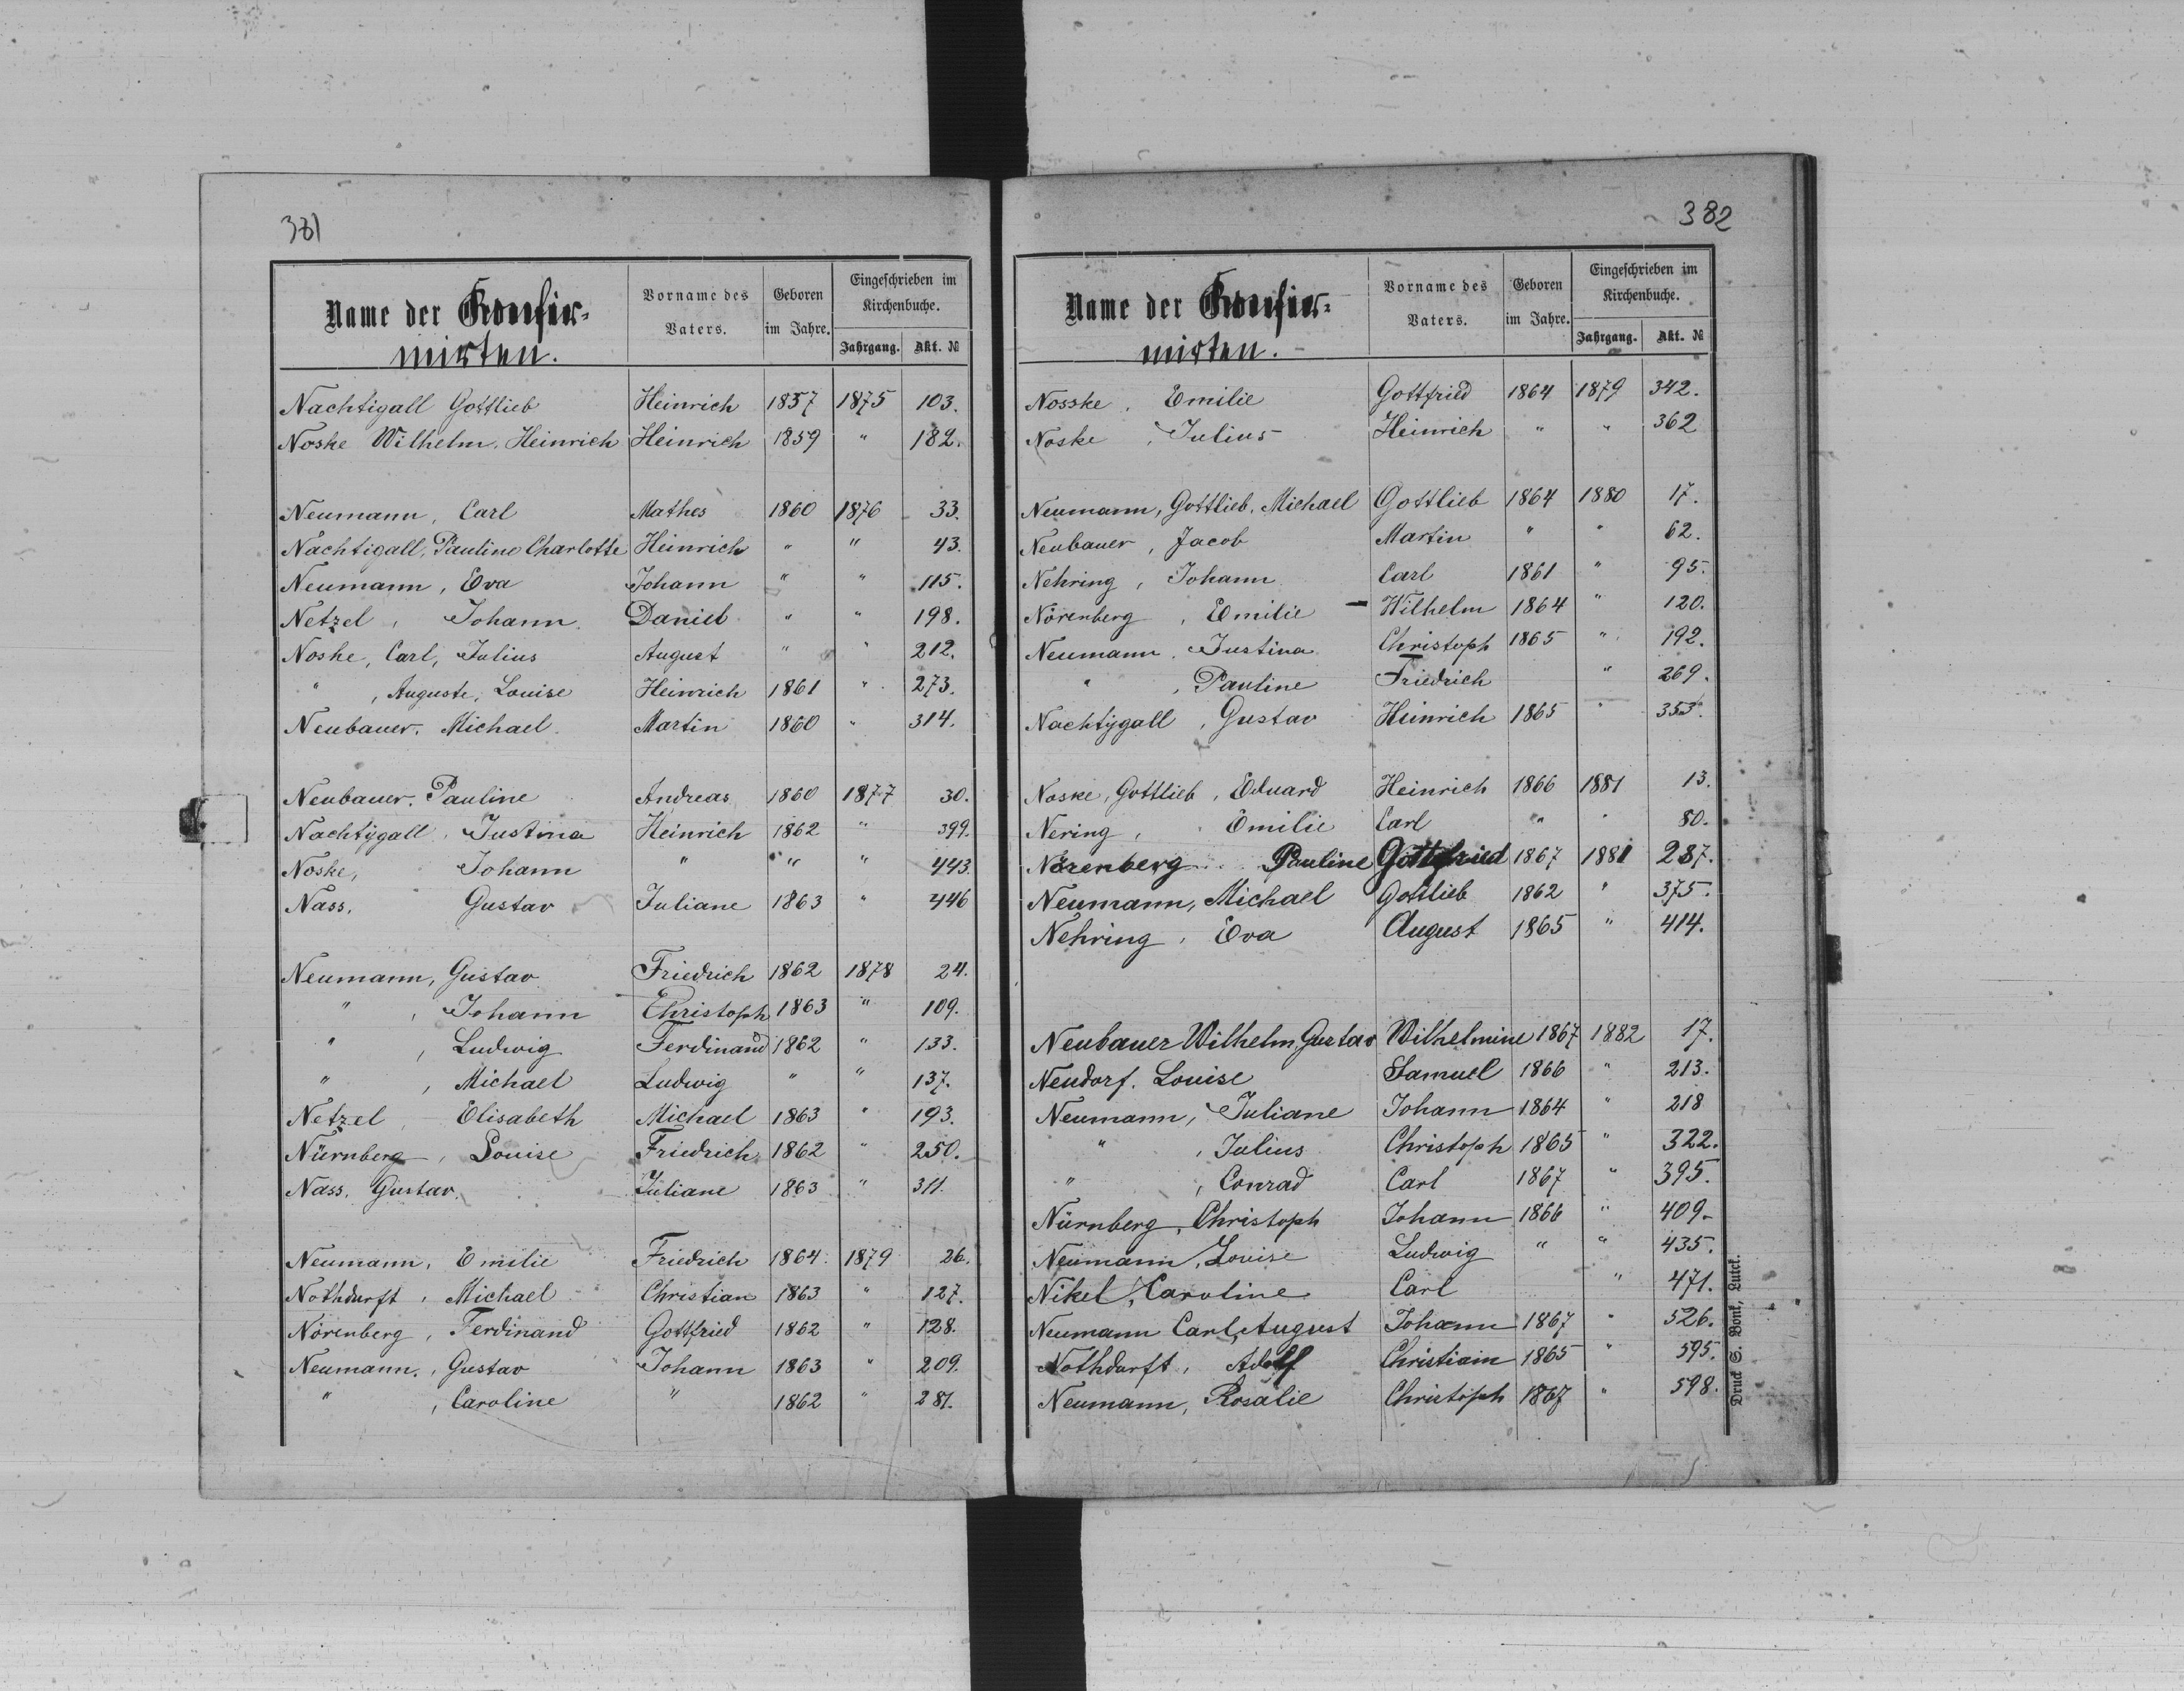 381
Name der Konfir-
mirten.
Vorname des
Vaters.
Geboren
im Jahre.
Eingeschrieben im
Kirchenbuche.
Jahrgang. Akt. №
Nachtigall Gottlieb Heinrich 1857 1875 103.
Noske Wilhelm, Heinrich Heinrich 1859 " 182.
Neumann, Carl Mathes 1860 1876 33.
Nachtigall, Pauline Charlotte Heinrich " " 43.
Neumann, Eva Johann " " 115.
Netzel, Johann Daniel " " 198.
Noske, Carl, Julius August " " 212.
" , Auguste, Louise Heinrich 1861 " 273.
Neubauer, Michael Martin 1860 " 314.
Neubauer. Pauline Andreas 1860 1877 30.
Nachtigall, Justina Heinrich 1862 " 399.
Noske, Johann " " " 443.
Nass, Gustav Juliane 1863 " 446
Neumann, Gustav Friedrich 1862 1878 24.
" , Johann Christoph 1863 " 109.
" , Ludwig Ferdinand 1862 " 133.
" , Michael Ludwig " " 137.
Netzel, Elisabeth Michael 1863 " 193.
Nürnberg, Louise Friedrich 1862 " 250.
Nass, Gustav. Juliane 1863 " 311.
Neumann, Emilie Friedrich 1864 1879 26.
Nothdurft, Michael Christian 1863 " 127.
Nörenberg, Ferdinand Gottfried 1862 " 128.
Neumann, Gustav Johann 1863 " 209.
" , Caroline " 1862 " 281.
382
Name der Konfir-
mirten.
Vorname des
Vaters.
Geboren
im Jahre.
Eingeschrieben im
Kirchenbuche.
Jahrgang. Akt. №
Nosske, Emilie Gottfried 1864 1879 342.
Noske, Julius Heinrich " " 362
Neumann, Gottlieb, Michael Gottlieb 1864 1880 17.
Neubauer, Jacob Martin " " 62.
Nehring, Johann Carl 1861 " 95.
Nörenberg, Emilie Wilhelm 1864 " 120.
Neumann, Justina Christoph 1865 " 192.
" , Pauline Friedrich " 269.
Nachtigall, Gustav Heinrich 1865 " 353.
Noske, Gottlieb, Eduard Heinrich 1866 1881 13.
Nering, Emilie Carl " " 80.
Nörenberg Pauline Gottfried 1867 1881 287.
Neumann, Michael Gottlieb 1862 " 375.
Nehring, Eva August 1865 " 414.
Neubauer Wilhelm, Gustav Wilhelmine 1867 1882 17.
Neudorf, Louise Samuel 1866 " 213.
Neumann, Juliane Johann 1864 " 218
" , Julius Christoph 1865 " 322.
" , Conrad Carl 1867 " 395.
Nürnberg, Christoph Johann 1866 " 409.
Neumann, Louise Ludwig " " 435.
Nikel, Caroline Carl " 471.
Neumann Carl, August Johann 1867 " 526.
Nothdurft, Adolf Christiain 1865 " 595.
Neumann, Rosalie Christoph 1867 " 598.
Druck S. Bonk, Lutck.